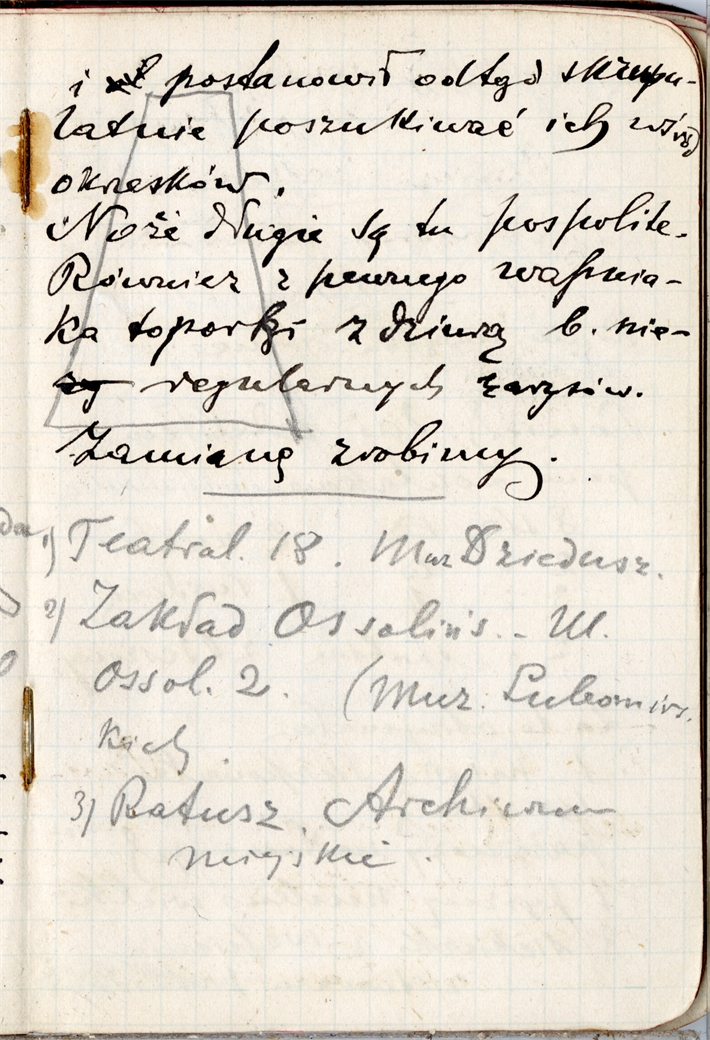 i postanowił odtąd skrupu-
latnie poszukiwać ich wśród
okrzesków.
Noże długie są tu pospolite.
Również z pewnego wapnia-
ka toporki z dziurą b. nie-
regularnych zarysów.
Zamianę zrobimy.
1) Teatral. 18. Muz Dziedusz.
2) Zakład Ossolińs. - Ul.
Ossol. 2. (Muz. Lubomirs.
kich
3) Ratusz. Archiwum
miejskie.